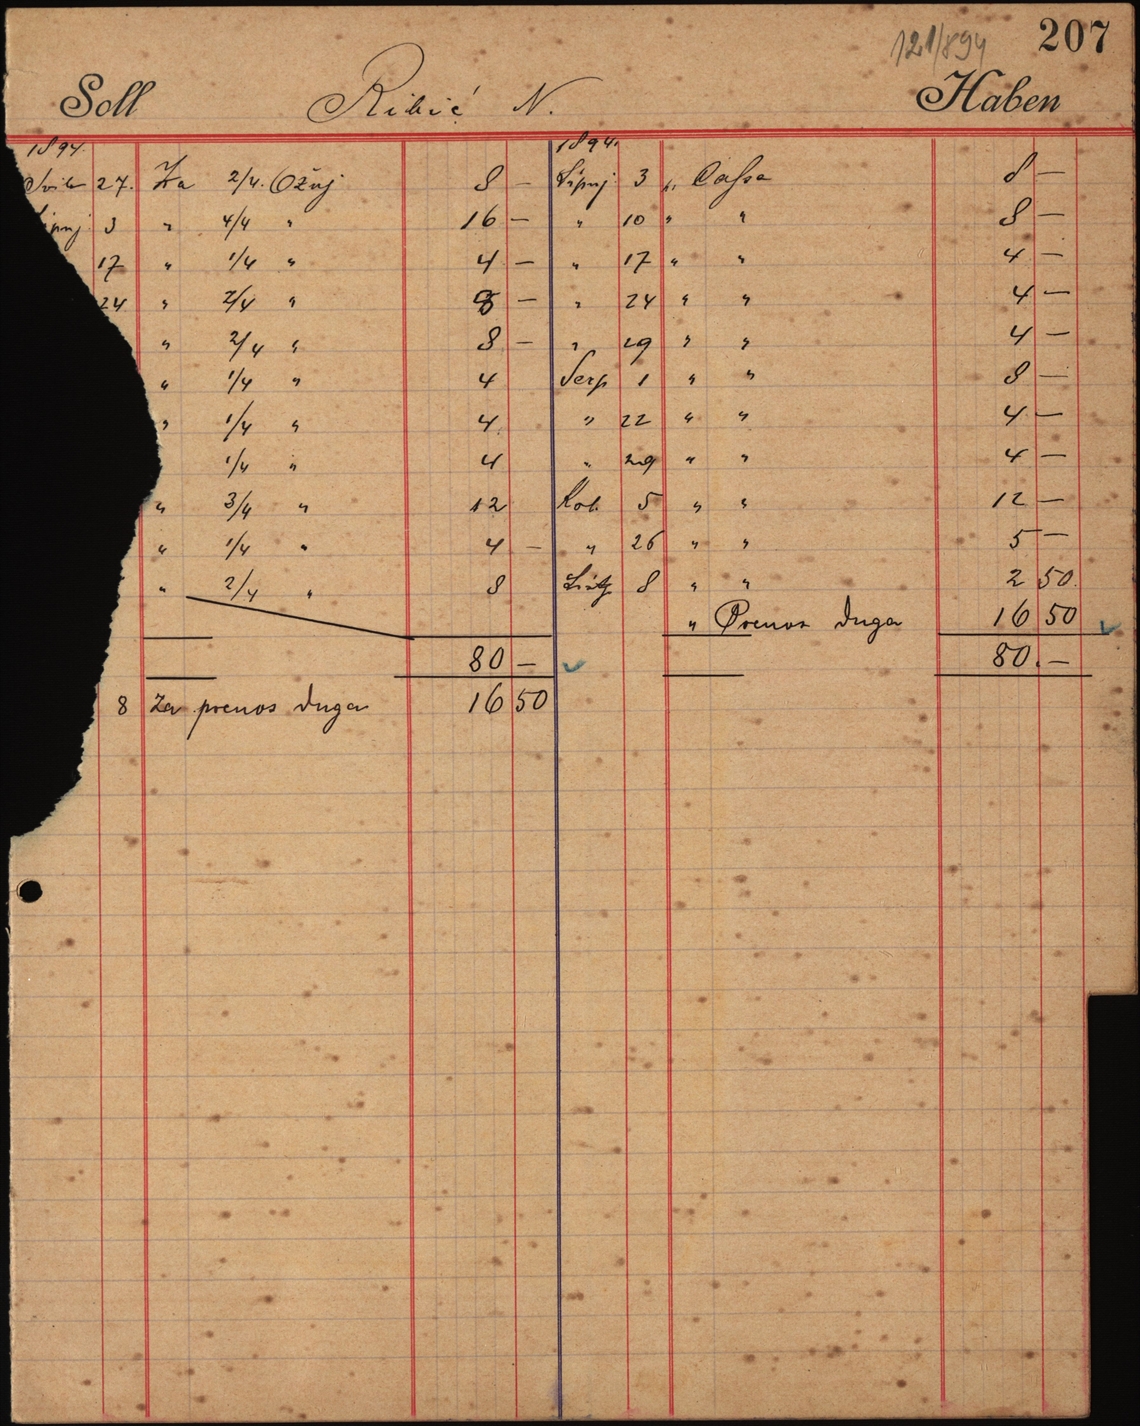 121/894 207
Soll Ribić N. Haben
1894. 1894.
Svib 27. Za 2/4. Ožuj 8 — Lipnj 3 " Cassa 8 —
Lipnj 3 " 4/4 " 16 — " 10 " " 8 —
17 " 1/4 " 4 — " 17 " " 4 —
24 " 2/4 " 8 — " 24 " " 4 —
" 2/4 " 8 — " 29 " " 4 —
" 1/4 " 4 Serp 1 " " 8 —
" 1/4 " 4 " 22 " " 4 —
1/4 " 4 " 29 " " 4 —
" 3/4 " 12 Kol. 5 " " 12 —
" 1/4 " 4 — " 26 " " 5 —
" 2/4 " 8 8 " " 2 50
" Prenos duga 16 50
80 — 80. —
8 Za prenos duga 16 50